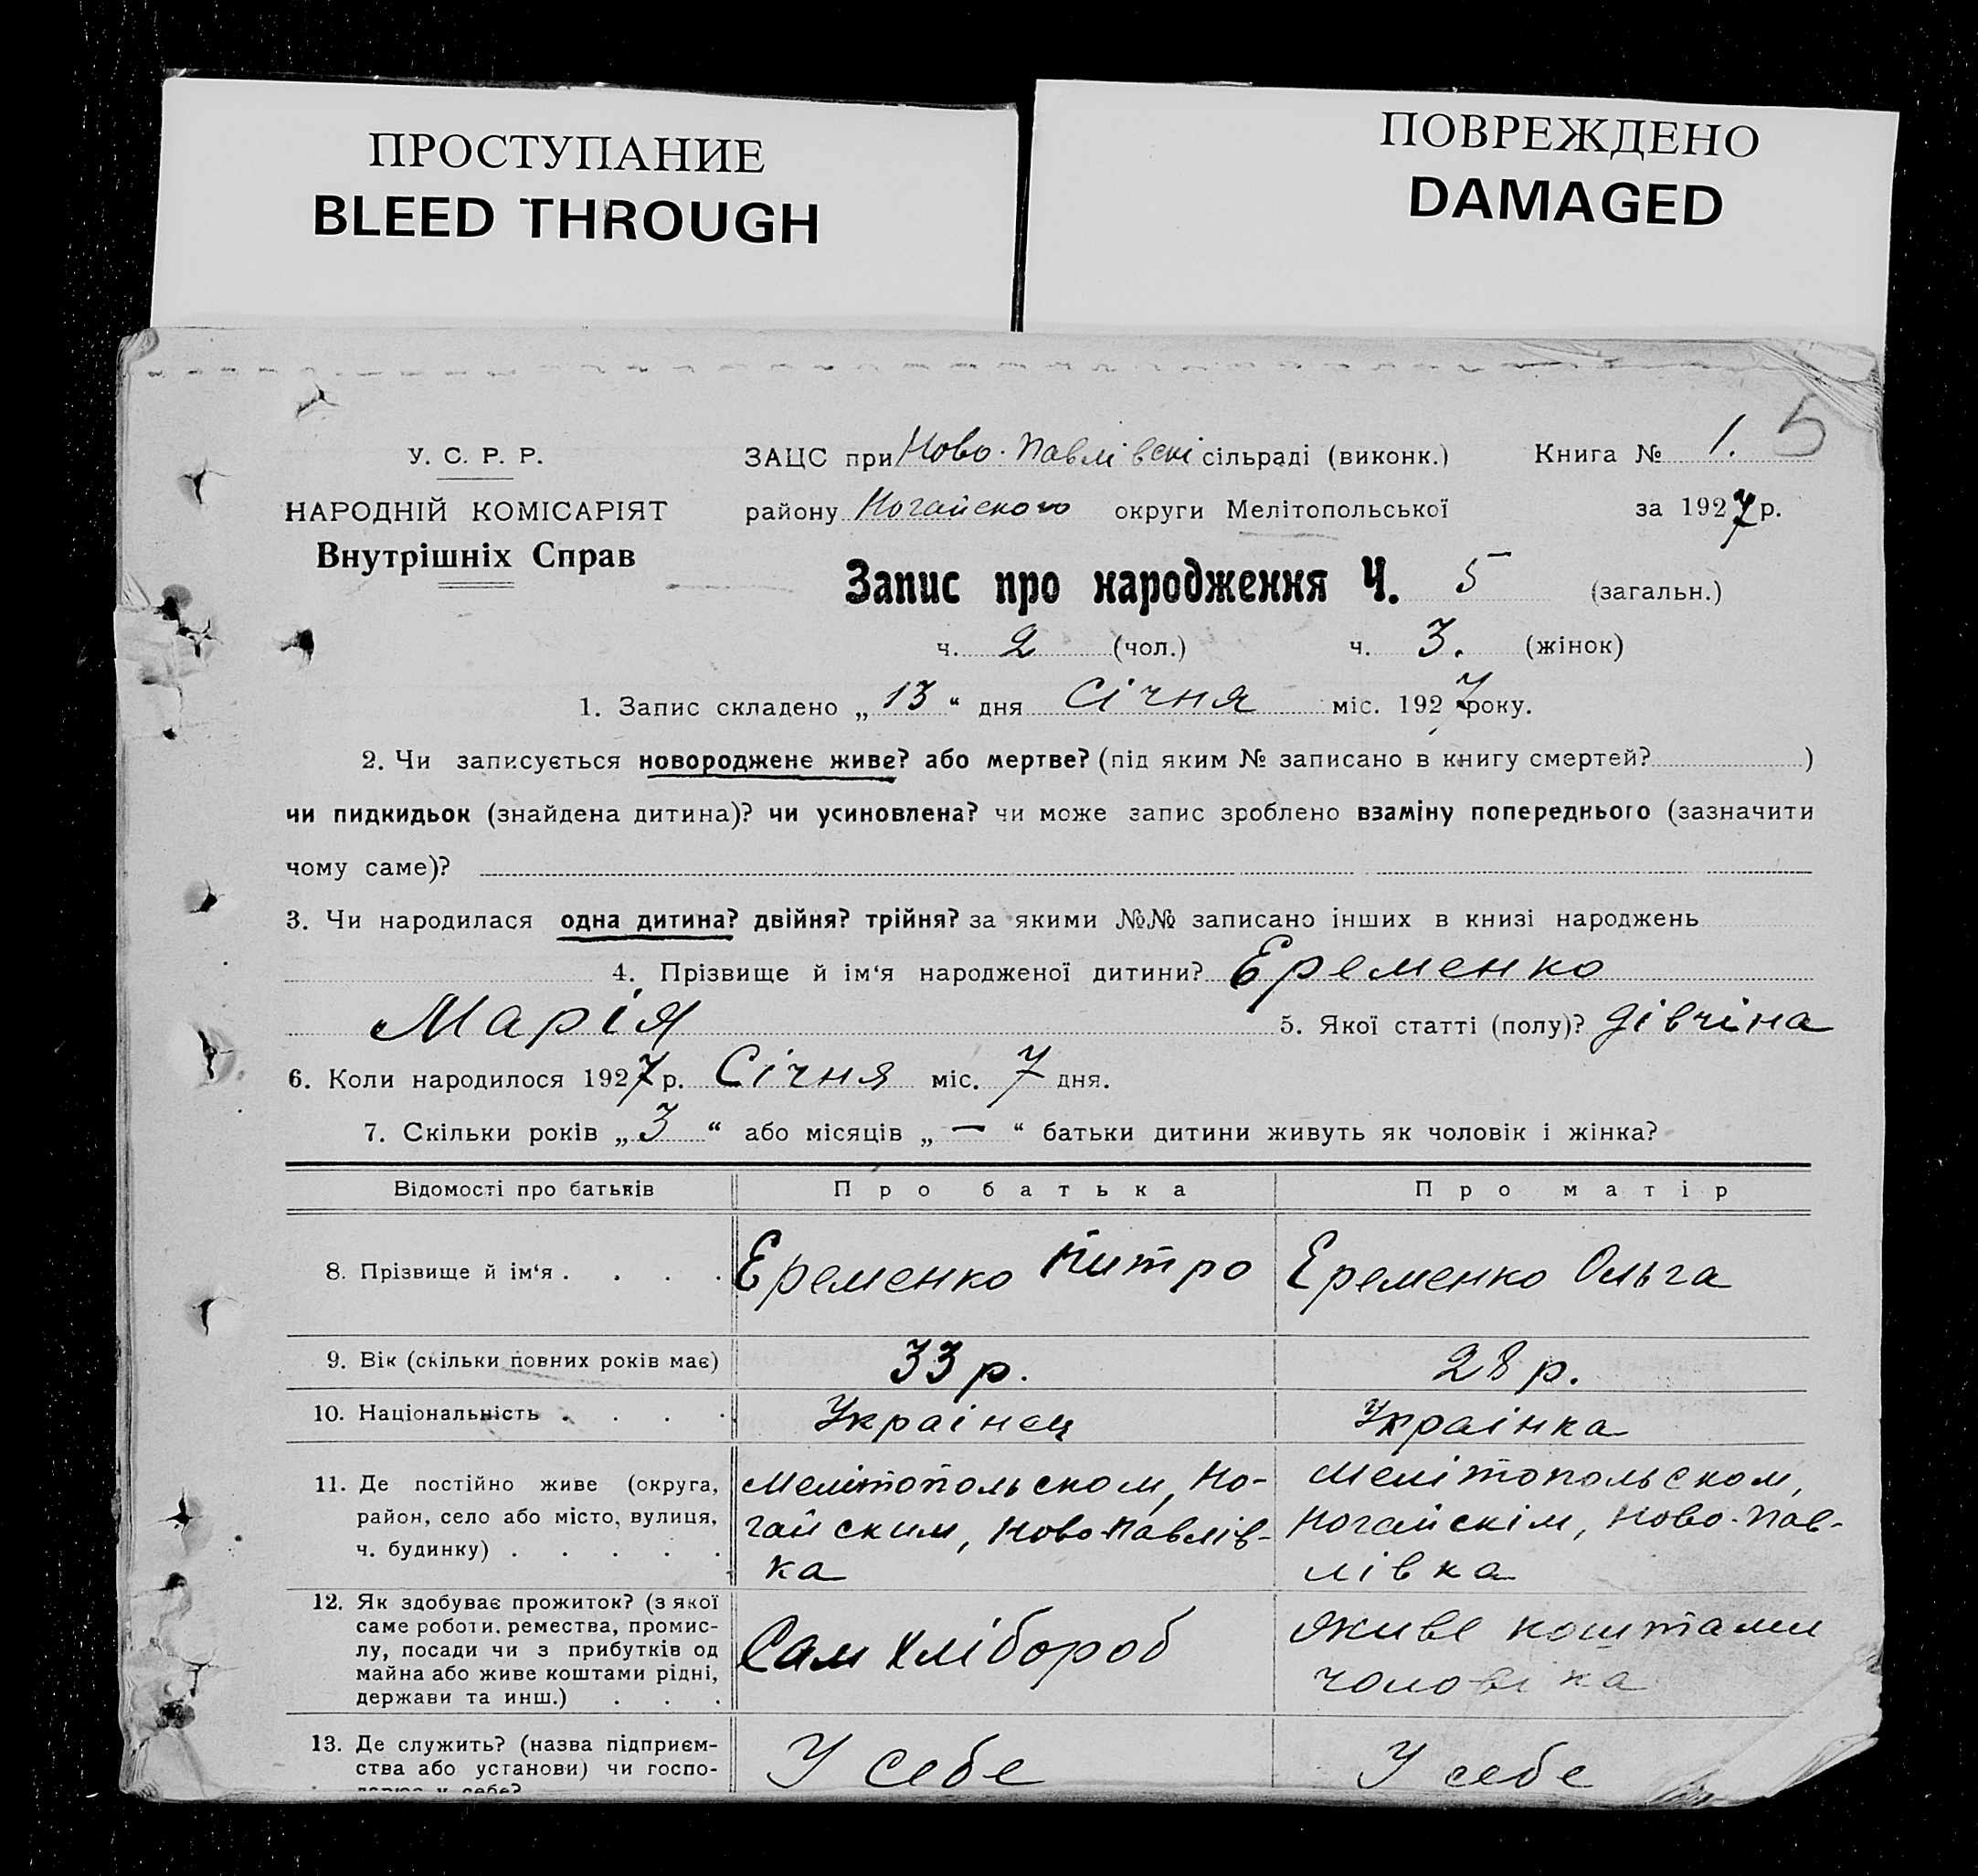 ПРОСТУПАНИЕ
BLEED THROUGH
ПОВРЕЖДЕНО
DAMAGED
5
У. С. Р. Р.
НАРОДНІЙ КОМІСАРІЯТ
Внутрішніх Справ
ЗАЦС при Ново-Павлівскі сільраді (виконк.) Книга № 1.
району Ногайского округи Мелітопольської за 1927 р.
Запис про народження Ч. 5 (загальн.)
ч. 2 (чол.) ч. 3. (жінок)
1. Запис складено „13“ дня Січня міс. 1927 року.
2. Чи записується новороджене живе? або мертве? (під яким № записано в книгу смертей? )
чи пидкидьок (знайдена дитина)? чи усиновлена? чи може запис зроблено взаміну попереднього (зазначити
чому саме)?
3. Чи народилася одна дитина? двійня? трійня? за якими №№ записано інших в книзі народжень
4. Прізвище й ім‘я народженої дитини? Еременко
Марія 5. Якої статті (полу)? дівчіна
6. Коли народилося 1927 р. Січня міс. 7 дня.
7. Скільки років „3“ або місяців „—“ батьки дитини живуть як чоловік і жінка?
Відомості про батьків Про батька Про матір
8. Прізвище й ім‘я . . . . Еременко Питро Еременко Ольга
9. Вік (скільки повних років має) 33 р. 28 р.
10. Національність . . . . Украінец Украінка
11. Де постійно живе (округа, Мелітопольском, Но- Мелітопольском,
район, село або місто, вулиця, гайским, Ново-Павлів- Ногайскім, Ново-Пав-
ч. будинку) . . . . . ка лівка
12. Як здобуває прожиток? (з якої
саме роботи. ремества, промис- Живе коштами
лу, посади чи з прибутків од Сам хлібороб
майна або живе коштами рідні, чоловіка
держави та инш.) . . .
13. Де служить? (назва підприєм- У себе У себе
ства або установи) чи госпо-
дарює у себе?